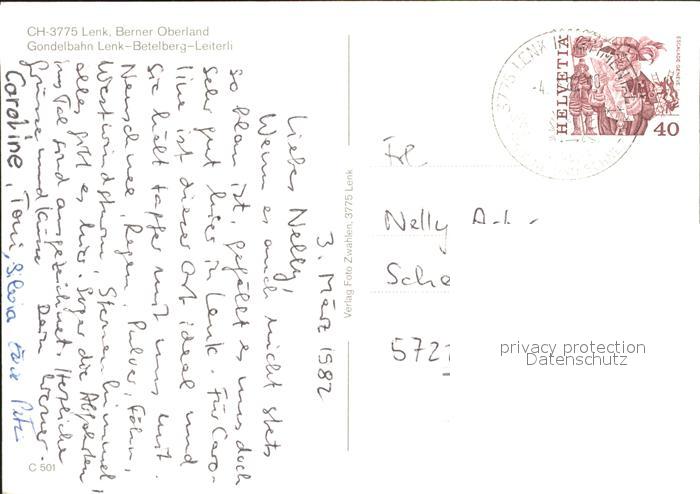 CH-3775 Lenk, Berner Oberland
Gondelbahn Lenk-Betelberg-Leiterli
3. März 1982
Liebes Nelly,
Wenn es auch nicht stets
so blau ist, gefällt es uns doch
sehr gut hier in Lenk. Für Caro-
line ist dieser Ort ideal und
sie hält tapfer mit uns mit.
Neuschnee, Regen, Pulver, Föhn,
Westwindsturm, Sternenhimmel,
alles gibt es hier. Sogar die Abfahrten
ins Tal sind ausgezeichnet. Herzliche
Grüsse und Dein Werner.
Caroline, Toni, Silvia
C 501
Verlag Foto Zwahlen, 3775 Lenk
3775 LENK
HELVETIA
ESCALADE GENÈVE
40
Frl
Nelly
Sche
572
privacy protection
Datenschutz